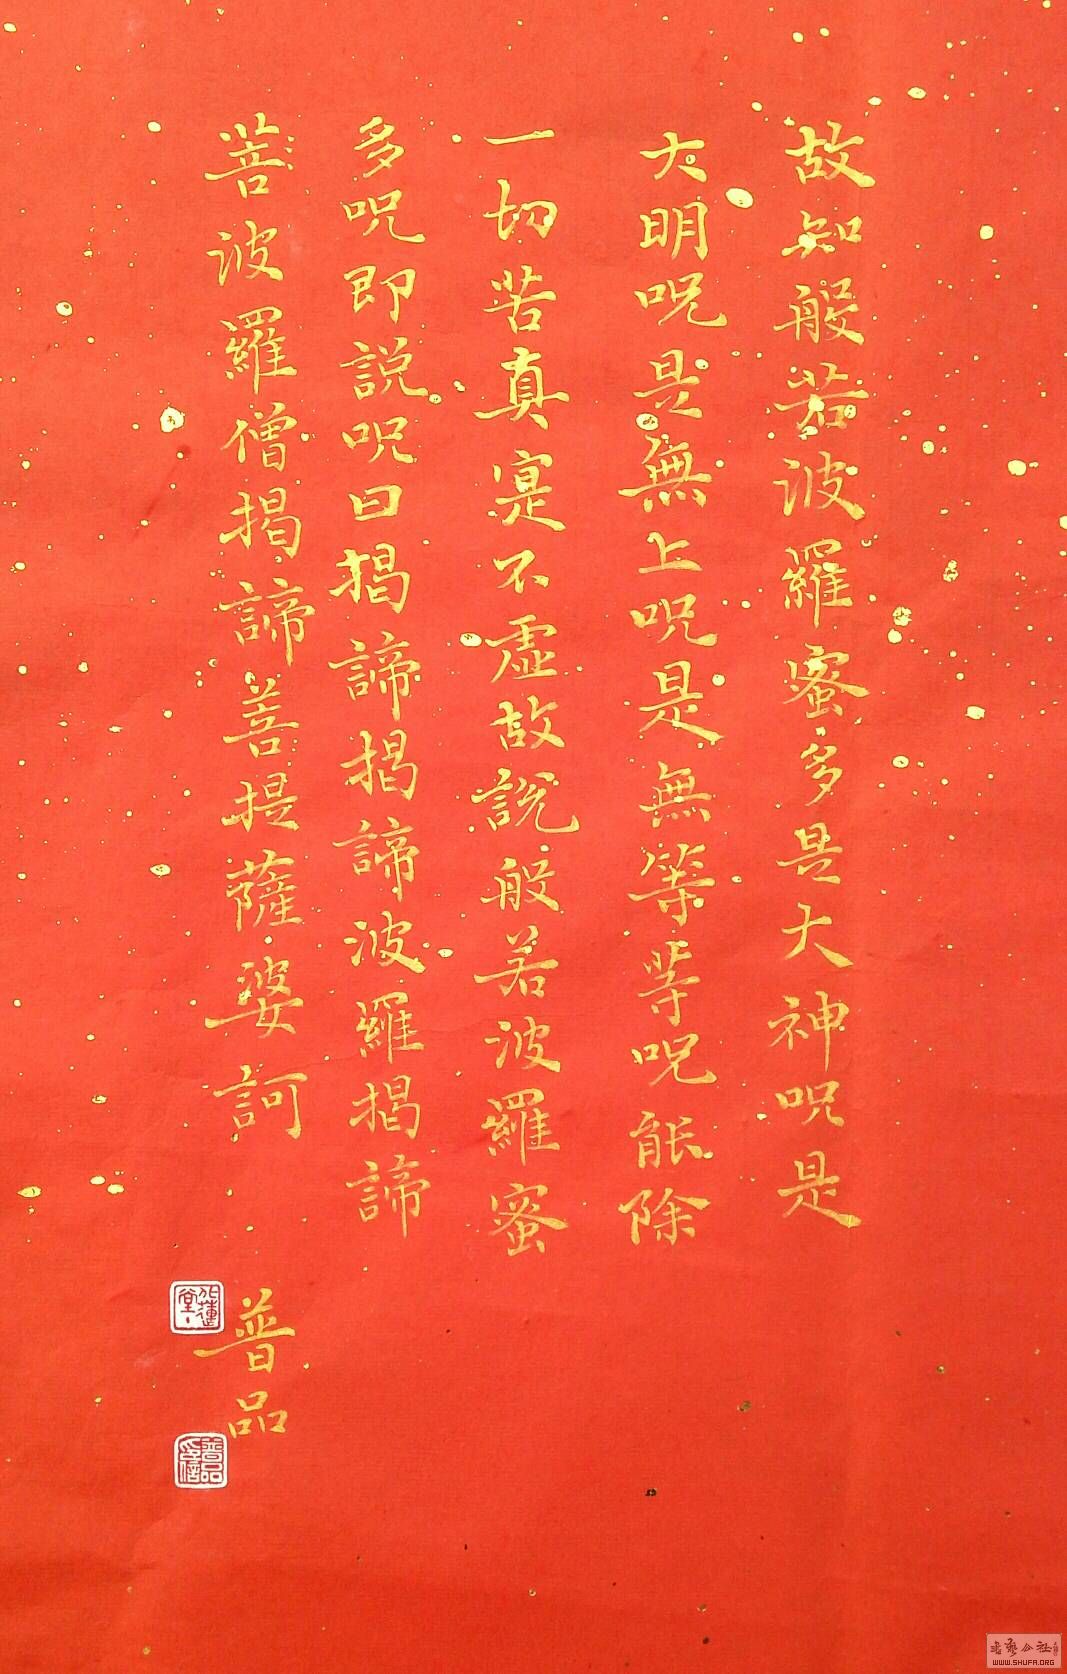 故知般若波羅蜜多是大神呪是
大明呪是無上呪是無等等呪能除
一切苦真寔不虛故說般若波羅蜜
多呪即說呪曰揭諦揭諦波羅揭諦
菩波羅僧揭諦菩提薩婆訶
普品
普品印信
書藝公社
WWW.SHUFA.ORG